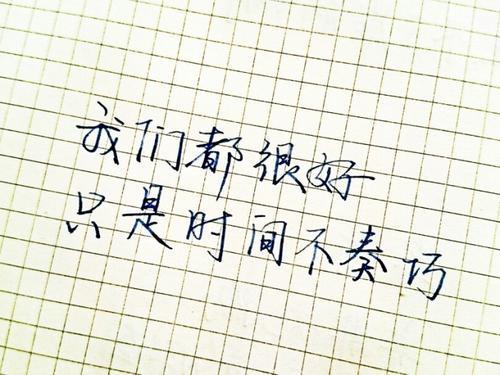 我们都很好
只是时间不奏巧